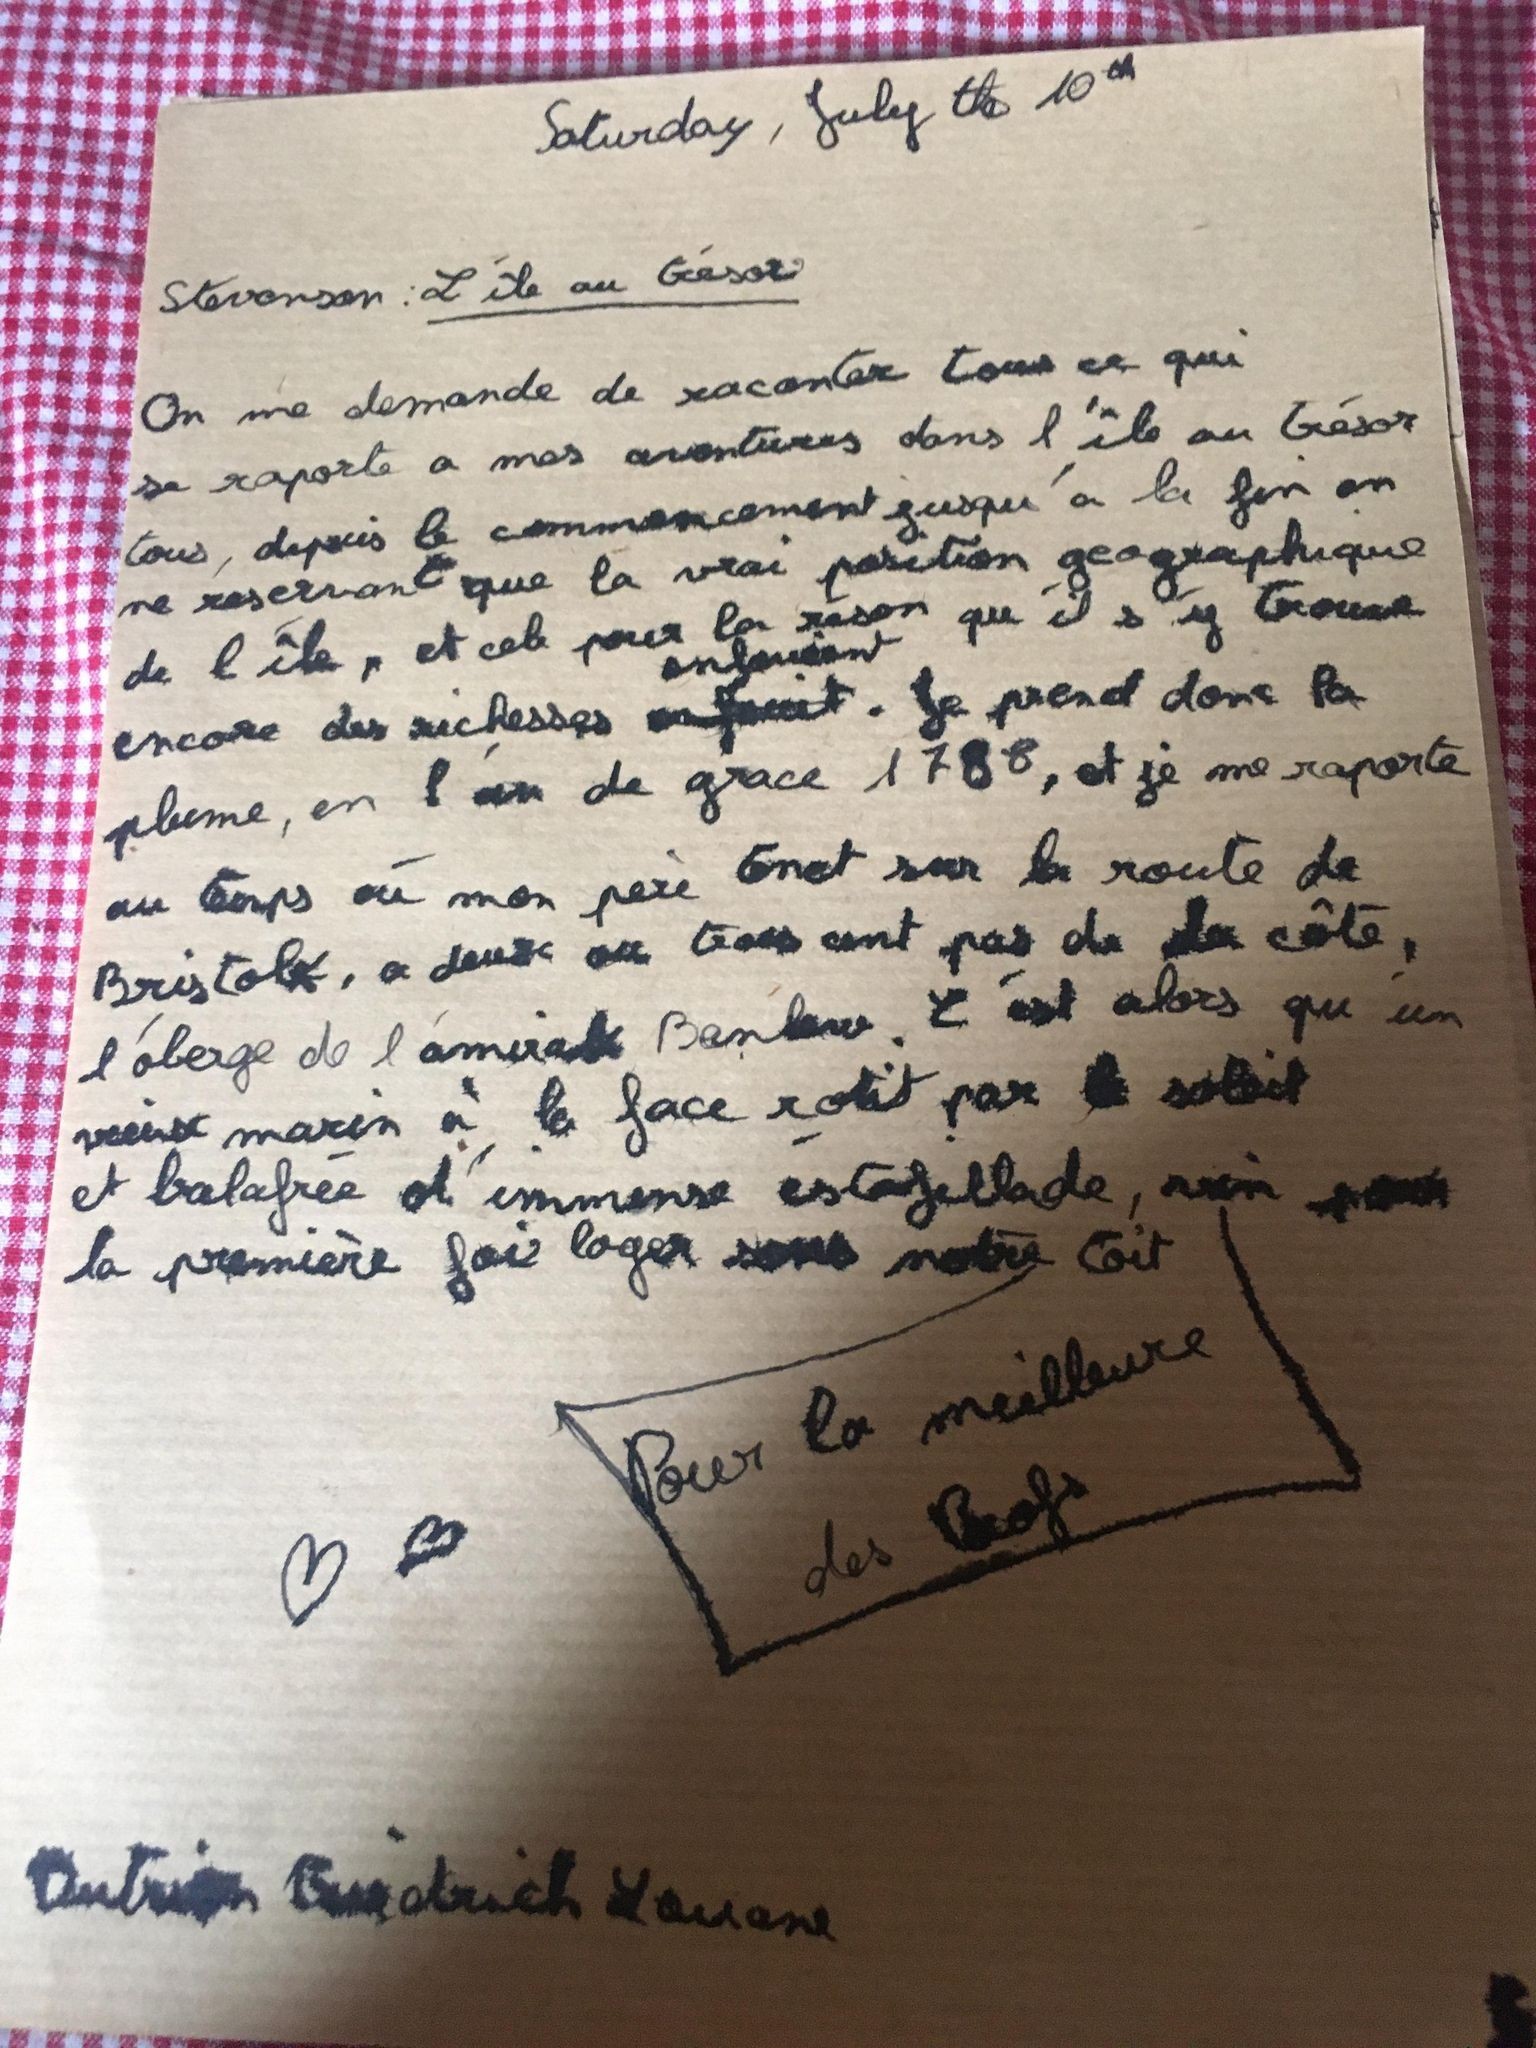 Saturday, July the 10th
Stevenson : L'île au trésor
On me demande de raconter tous ce qui
se raporte a mes aventures dans l'île au trésor
tous, depuis le commencement jusqu'a la fin en
ne reservant que la vrai position geographique
de l'île, et cela pour la réson qu'il s'y trouve
enfouient
encore des richesses . Je prend donc la
plume, en l'an de grace 1788, et je me raporte
au temps où mon pere tenet sur la route de
Bristol, a deux ou trois cent pas de la côte,
l'oberge de l'amiral Benbow. C'est alors qu'un
vieux marin à la face rotit par le soleil
et balafrée d'immense estafillade, vein pour
la première foi loger sous notre toit
Pour la meilleure
des Profs
Louane